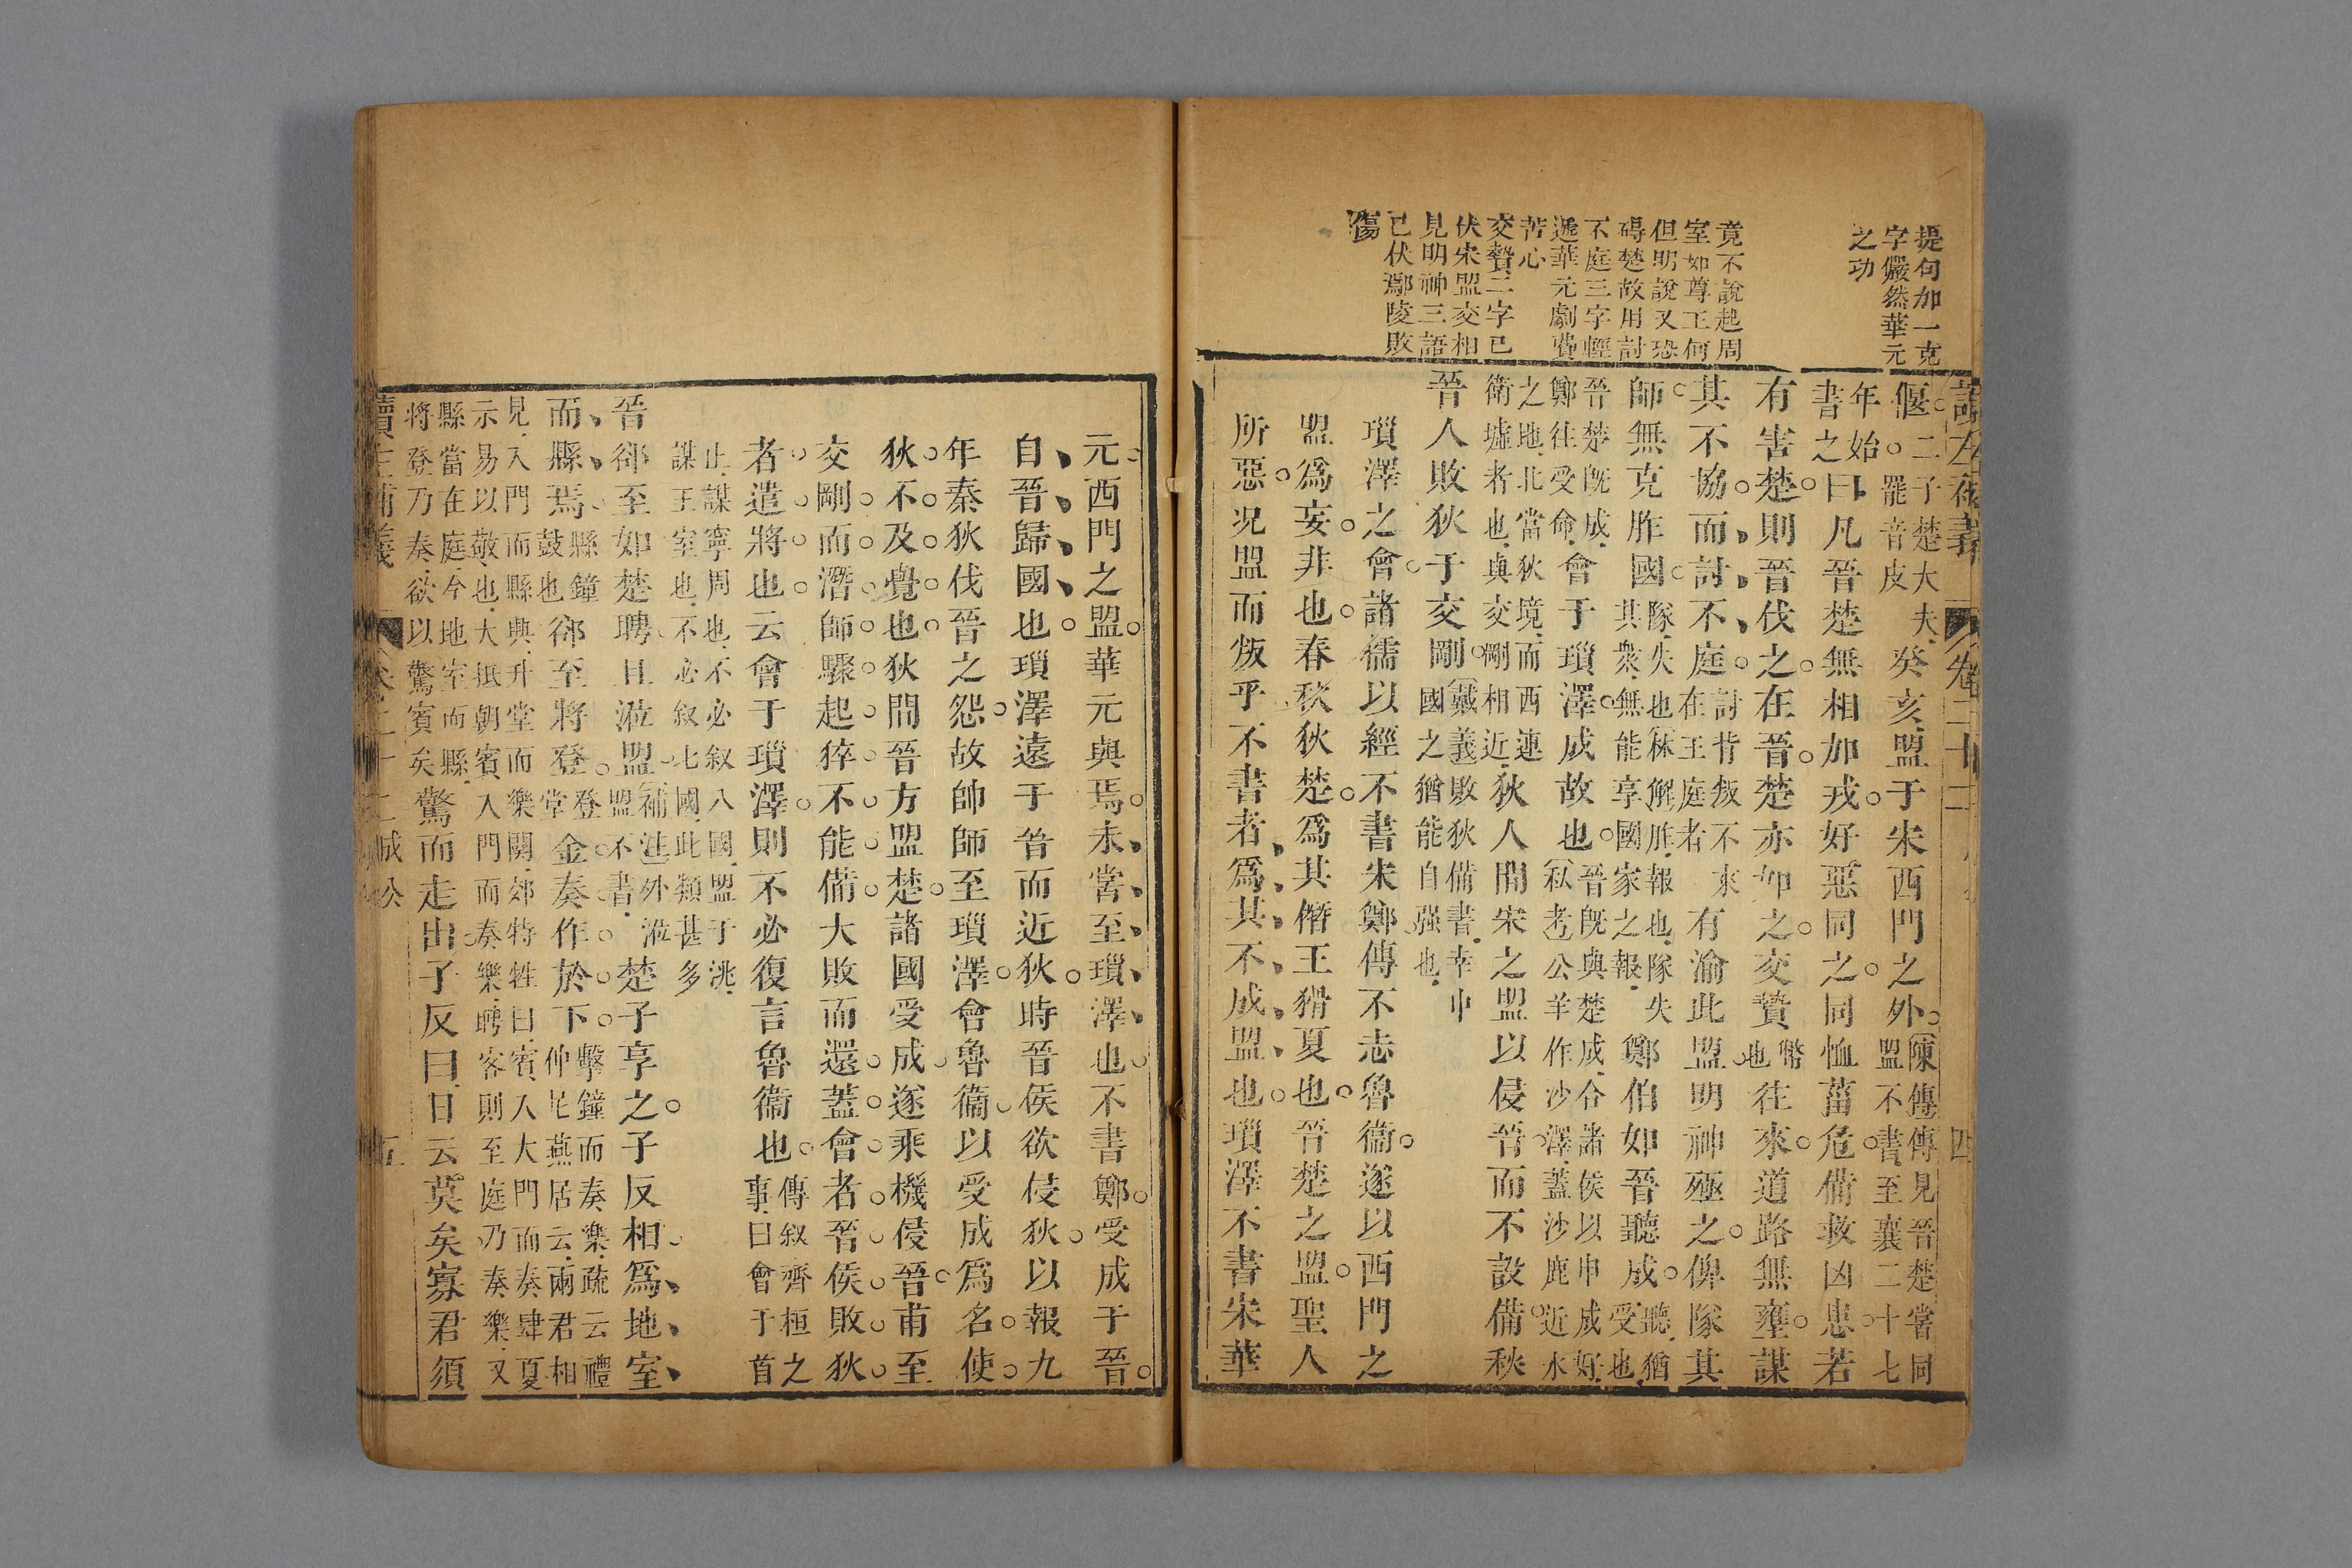 提句加一克
字儼然華元
之功
竟不說起周
室如尊王何
但明說又恐
碍楚故用討
不庭三字輕
遞華元劇費
苦心
交贄二字已
伏宋盟交相
見明神三語
已伏鄢陵敗
傷
讀左補義
卷二十二
四
偃。二子楚大夫。罷音皮癸亥盟于宋西門之外。陳傳傳見晉楚嘗同盟不書至襄二十七
年始書之。曰凡晉楚無相加戎。好惡同之。同恤菑危。備救凶患。若
有害楚。則晉伐之。在晉。楚亦如之。交贄幣也往來。道路無壅。謀
其不協。而討不庭。討背叛不來在王庭者有渝此盟。明神殛之。俾隊其
師。無克胙國。隊。失也。林解胙。報也。隊失其衆。無能享國家之報。鄭伯如晉聽成。聽。猶受也。
晉楚既成。鄭往受命。會于瑣澤。成故也。晉既與楚成合諸侯以申成好。私考公羊作沙澤蓋沙鹿近水
之地。北當狄境。而西連衛墟者也。與交剛相近。狄人間宋之盟以侵晉而不設備。秋
晉人敗狄于交剛。戴義敗狄備書。幸中國之猶能自强也。
瑣澤之會。諸儒以經不書宋鄭。傳不志魯衞。遂以西門之
盟爲妄。非也。春秋狄楚。爲其僭王猾夏也。晉楚之盟。聖人
所惡。况盟而叛乎。不書者爲其不成盟也。瑣澤不書宋華
元。西門之盟。華元與焉。未嘗至瑣澤也。不書鄭。受成于晉。
自晉歸國也。瑣澤遠于晉而近狄。時晉侯欲侵狄。以報九
年秦狄伐晉之怨。故帥師至瑣澤。會魯衞。以受成爲名。使
狄不及覺也。狄間晉方盟楚。諸國受成。遂乘機侵晉。甫至
交剛而潛師驟起。猝不能備。大敗而還。蓋會者晉侯。敗狄
者。遣將也。云會于瑣澤。則不必復言魯衞也。傳叙齊桓之事曰會于首
止。謀寧周也。不必叙八國。盟于洮。謀王室也。不必叙七國。此類甚多
晉郤至如楚聘。且涖盟。補注外涖盟不書。楚子享之。子反相。爲地室
而縣焉。縣鐘鼓也郤至將登。登堂金奏作於下。擊鐘而奏樂。疏云禮仲尼燕居云。兩君相
見。入門而縣興。升堂而樂闋。郊特牲曰。賓入大門而奏肆夏示易以敬也。大抵朝賓入門而奏樂。聘客則至庭乃奏樂。又
縣當在庭。今地室而縣。將登乃奏。欲以驚賓矣驚而走出。子反曰。日云莫矣。寡君須
讀左補義
卷二十二成公
五